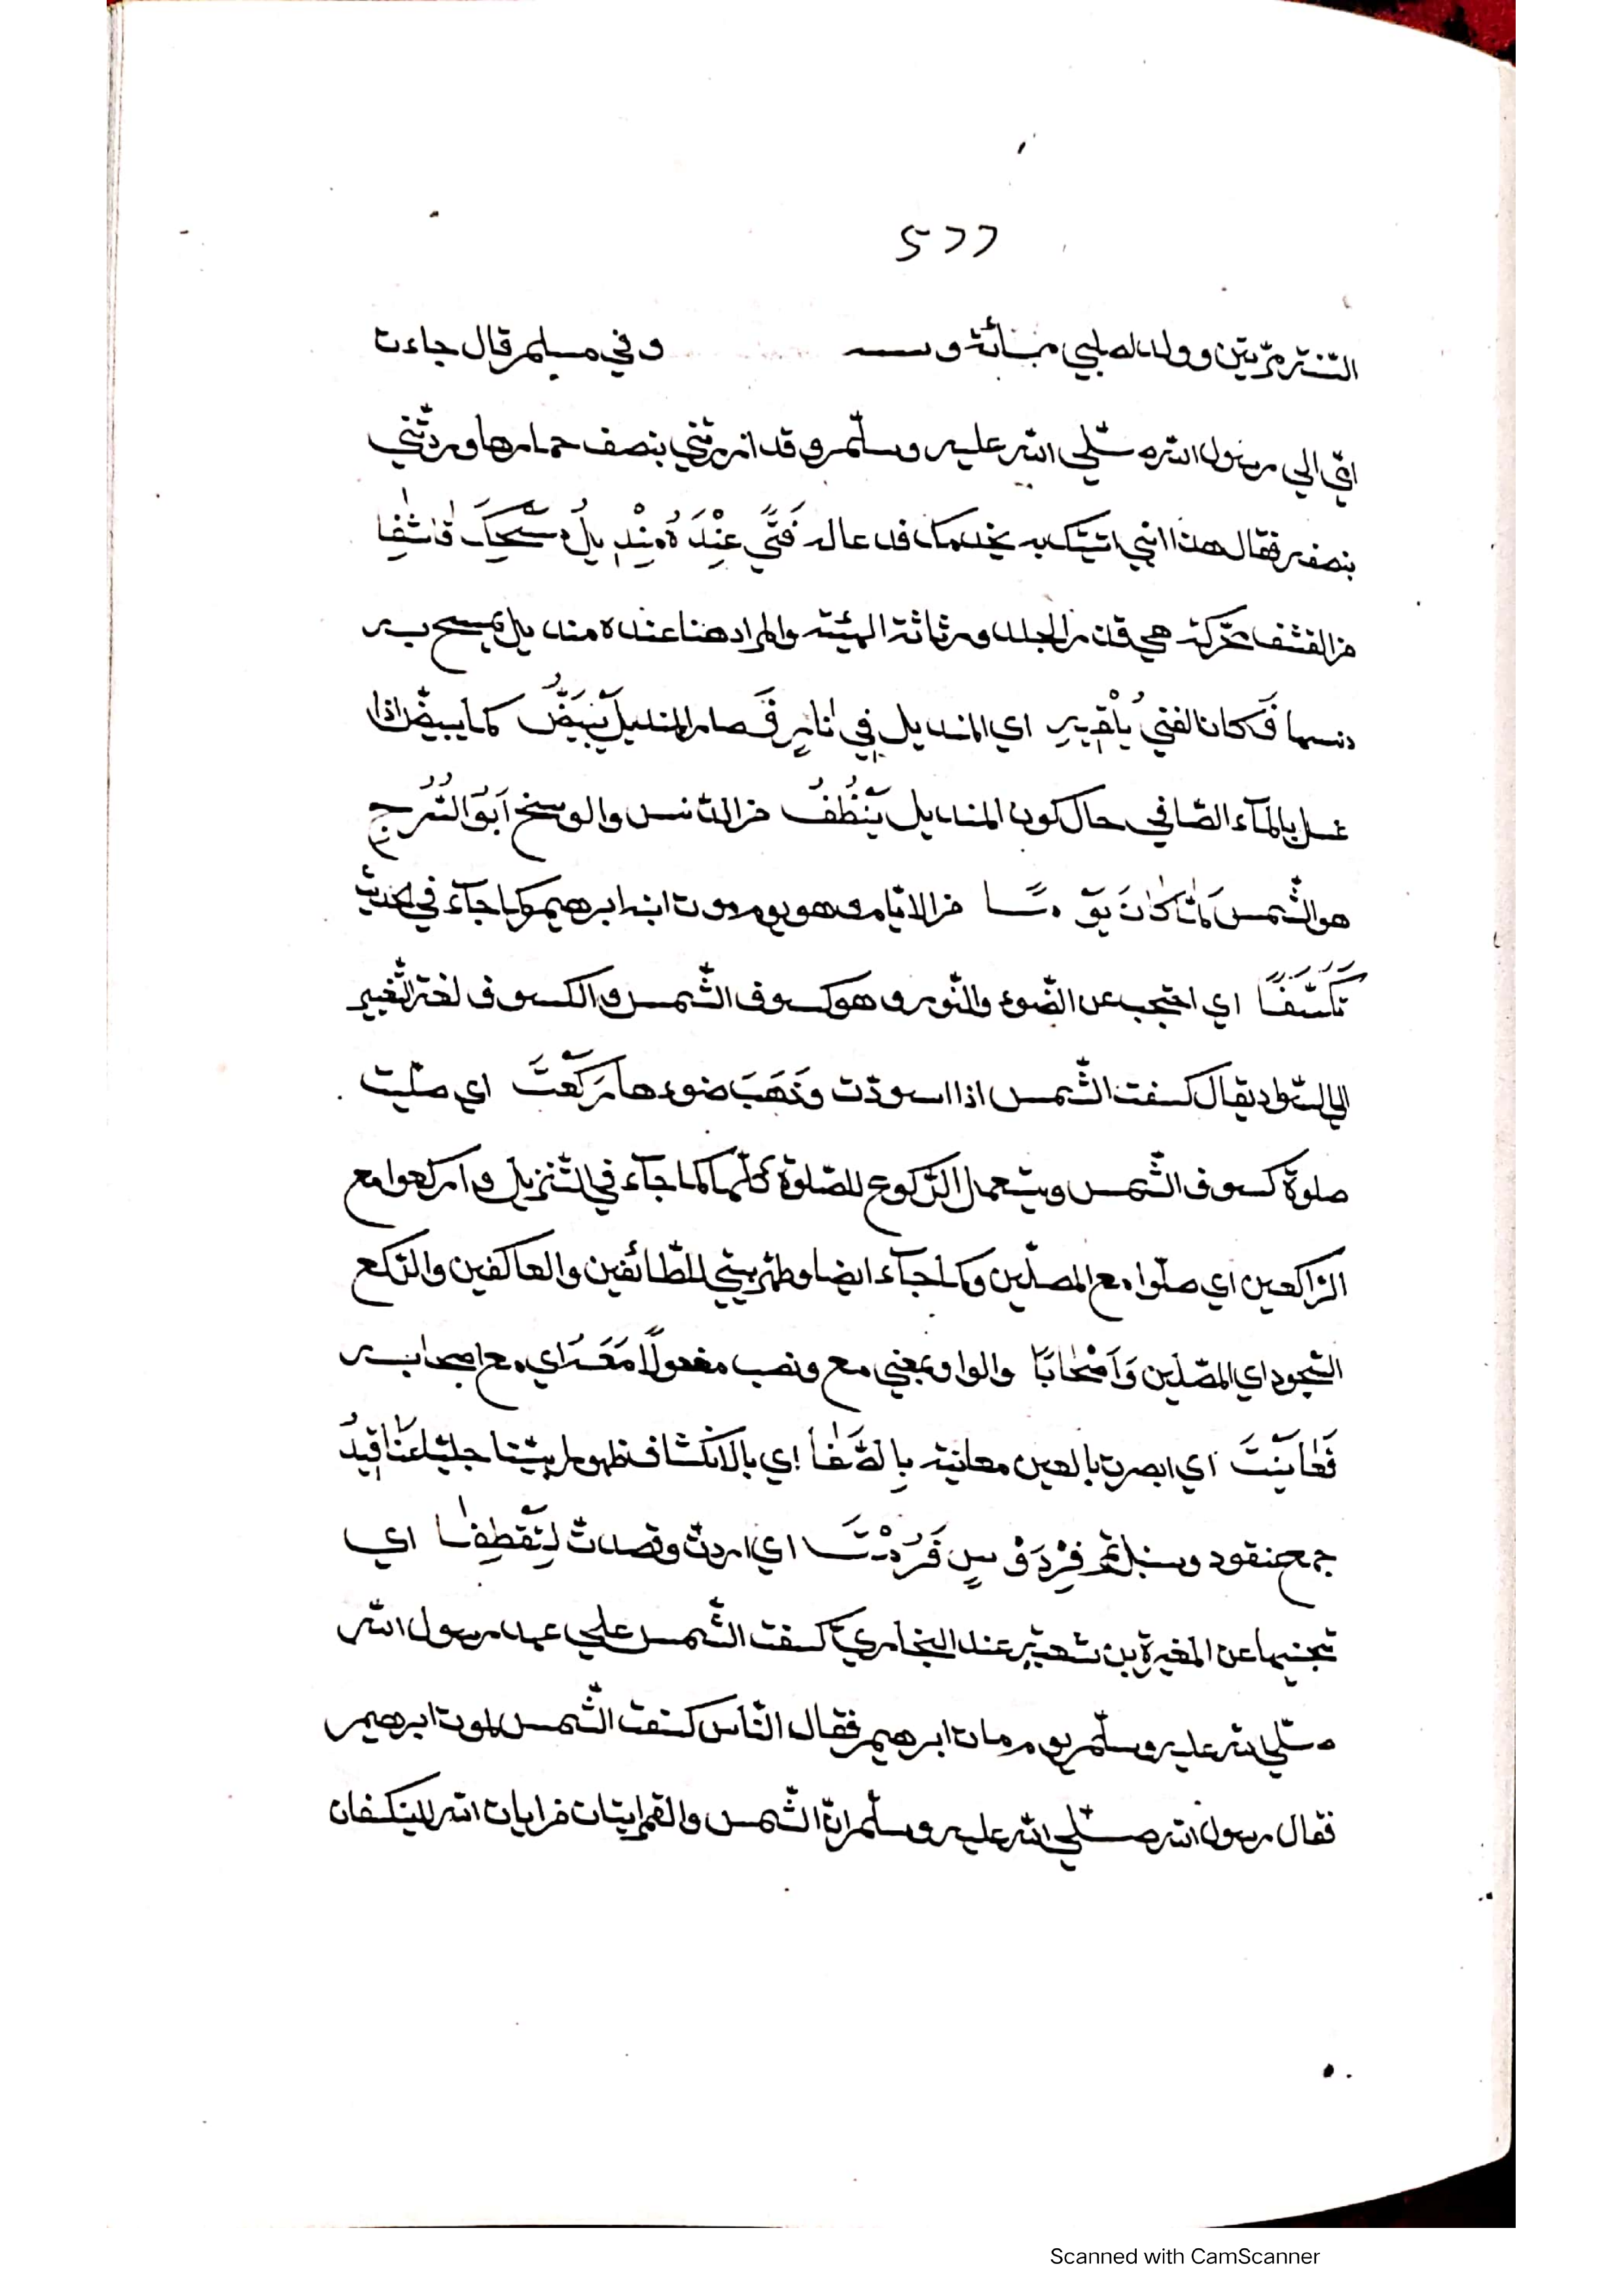 ٥٦٦
السنة مرّتين وولد لصلبي مبائة و وفي مسلم قال جاءت
امّي الي رسول الله صلّي الله عليه وسلّم وقد ازرتني بنصف خمارها وردّتني
بنصفه فقال هذا انني اتيتك به يخدمك فدعا له فَتًي عِنْدَهُ مِنْدِيلُ قَاشِفًا
من القشف محركة هي قذر الجلد ورثاثة الهيئة والمراد هنا عنده منديل يمسح به
دنسها فَكان الفتي يُلْقِيهِ اي المنديل فِي نَارٍ فَصار المنديل يَبْيَضُّ كما يبيضّ اذا
غسل بالمآء الصّافي حال كون المنديل يَنْظُفُ من الدّنس والوسخ
هو الشّمس كَانَ يَوْمًا من الايّام وهو يوم موت ابنه ابرهيم كما جآء في الحديث
تَكَسَّفَا اي احتجب عن الضّوء والنّور وهو كسوف الشّمس والكسوف لغة التّغيير
الي السّواد يقال كسفت الشّمس اذا اسودّت وَذَهَبَ ضوءها رَكَعْتَ اي صلّيت
صلوة كسوف الشّمس ويستعمل الرّكوع للصّلوة كلّها كما جآء في التّنزيل واركعوا مع
الرّاكعين اي صلّوا مع المصلّين وكما جآء ايضا وطهّر بيتي للطّائفين والعاكفين والرّكع
السّجود اي المصّلين وَاَصْحَابًا والواو بمعني مع ونصب مفعولًا مَعَهُ اي مع اصحابه
فَعَايَنْتَ اي ابصرت بالعين معاينة اي بالانكشاف ظهورا بيّنا جليّا عَنَاقِيدُ
جمع عنقود وسنبل ثمر فِرْدَوْسٍ فَرُدْتَ اي اردت وقصدت لِتَقْطِفَا اي
تجنيها عن المغيرة بن شعبة عند البخاريّ كسفت الشّمس علي عهد رسول الله
صلّي الله عليه وسلّم يوم مات ابرهيم فقال النّاس كسفت الشّمس لموت ابرهيم
فقال رسول الله صلّي الله عليه وسلّم انّ الشّمس والقمر ايتان من ايات الله لاينكسفان
Scanned with CamScanner